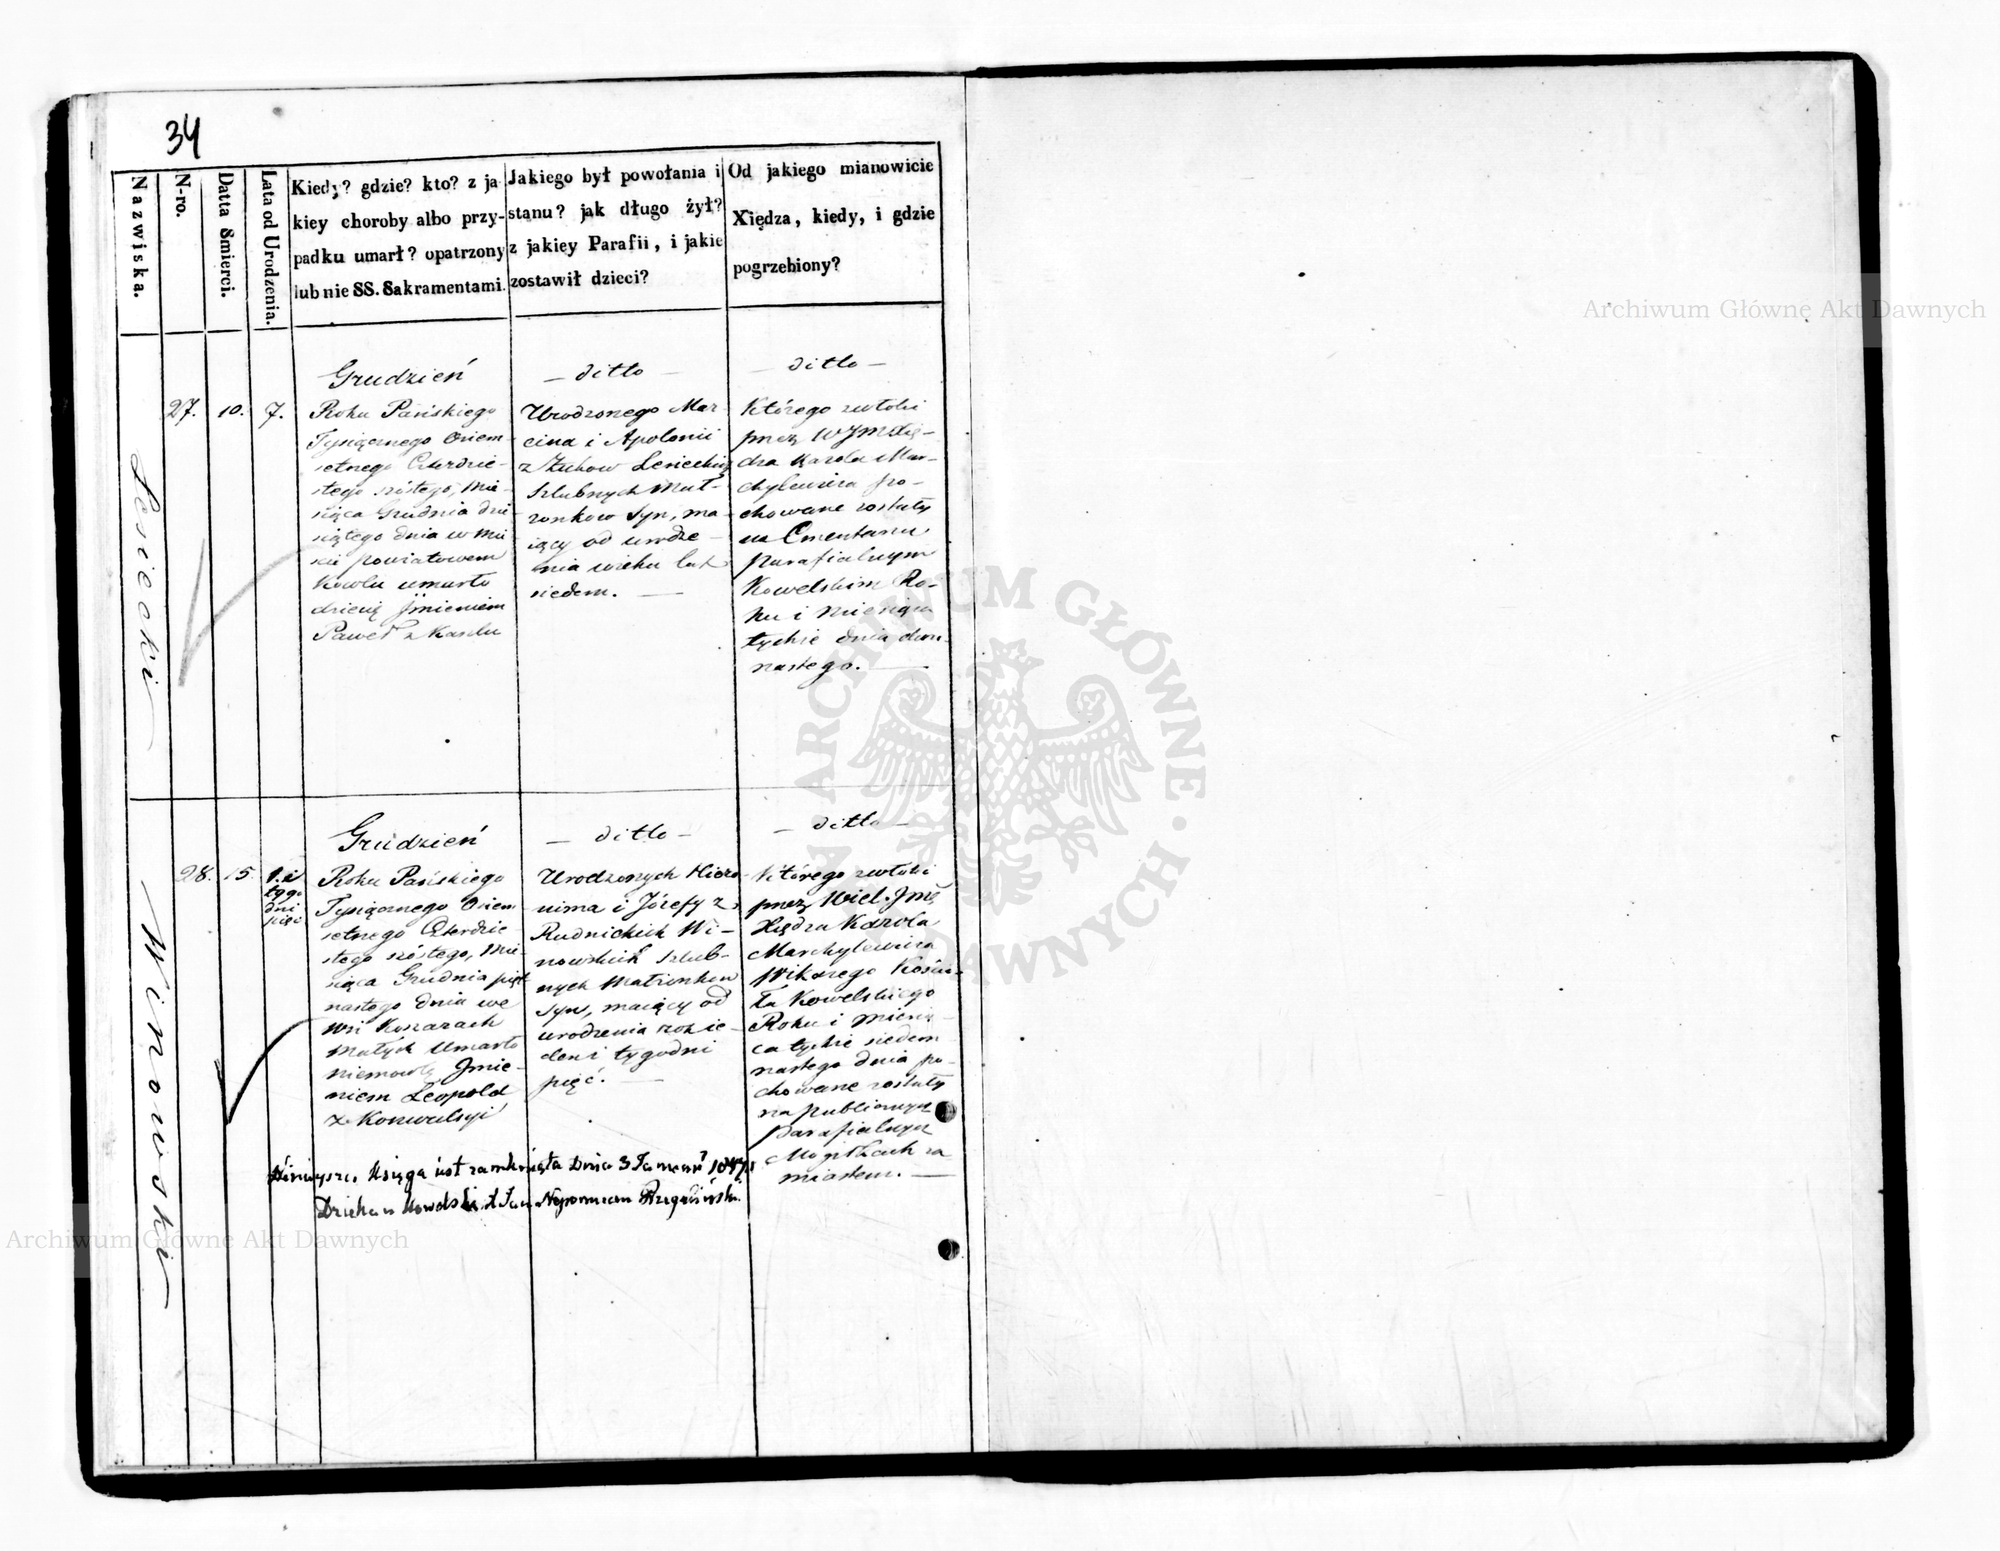 34
Nazwiska.
N-ro.
Datta Smierci.
Lata od Urodzenia.
Kiedy? gdzie? kto? z ja
kiey choroby albo przy-
padku umarł? opatrzony
lub nie SS. Sakramentami.
Jakiego był powołania i
stanu? jak długo żył?
z jakiey Parafii, i jakie
zostawił dzieci?
Od jakiego mianowicie
Xiędza, kiedy, i gdzie
pogrzebiony?
Lesiecki
27.
10.
7.
Grudzień
Roku Pańskiego
Tysiącznego Osiem-
setnego Czterdzie-
stego szóstego, Mie-
siąca Grudnia dzie-
siątego dnia w Mie
ście powiatowem
Kowlu umarło
dziecię Jmieniem
Paweł z Kaszlu
— ditto —
Urodzonego Mar-
cina i Apolonii
z Żuków Lesieckich
Szlubnych Mał-
żonków Syn, ma-
iący od urodze-
nia wieku lat
siedem. —
— ditto —
Którego zwłoki
przez WJmXię-
dza Karola Mar-
chylewicza po-
chowane zostały
na Cmentarzu
parafialnym
Kowelskim Ro-
ku i Miesiąca
tychże dnia dwu-
nastego. —
Winowski
28.
15.
1. i
tygo
dni
pięć
Grudzień
Roku Pańskiego
Tysiącznego Osiem
setnego Czterdzie
stego szóstego, Mie-
siąca Grudnia pięt
nastego dnia we
wsi Koszarach
Małych Umarło
niemowlę Jmie-
niem Leopold
z Konwulsyi
— ditto —
Urodzonych Hiero-
nima i Józefy z
Rudnickich Wi-
nowskich szlub-
nych Małżonków
Syn, maiący od
urodzenia rok ie-
den i tygodni
pięć. —
— ditto —
Którego zwłoki
przez Wiel. Jmć
Xiędza Karola
Marchylewicza
Wikarego Kościo-
ła Kowelskiego
Roku i Miesią-
ca tychże siedem
nastego dnia po-
chowane zostały
na publicznych
parafialnych
Mogiłkach za
miastem. —
Ninieysza Księga jest zamknięta Dnia 3 Januarii 1847 r.
Dziekan Kowelski X Jan Nepomucen
Archiwum Główne Akt Dawnych
Archiwum Główne Akt Dawnych
ARCHIWUM GŁÓWNE AKT DAWNYCH